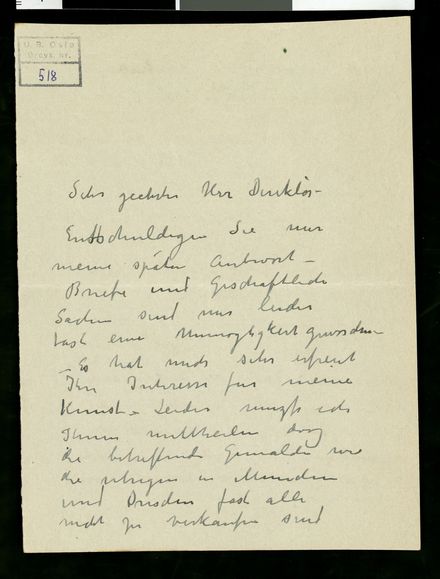 U. B. Oslo
Brevs. nr.
518
Sehr geehrter Herr Direktör -
Entschuldigen Sie nur
meine späten Antwort -
Briefe und Geschäftliche
Sachen sind mir leider
fast eine Unmögligkeit geworden
- Es hat mich sehr erfreut
Ihr Interesse für meine
Kunst - Leider muss ich
Ihnen mittheilen dass
die betreffende Gemälde wie
die übrigen in München
und Dresden fast alle
nicht zu verkaufen sind